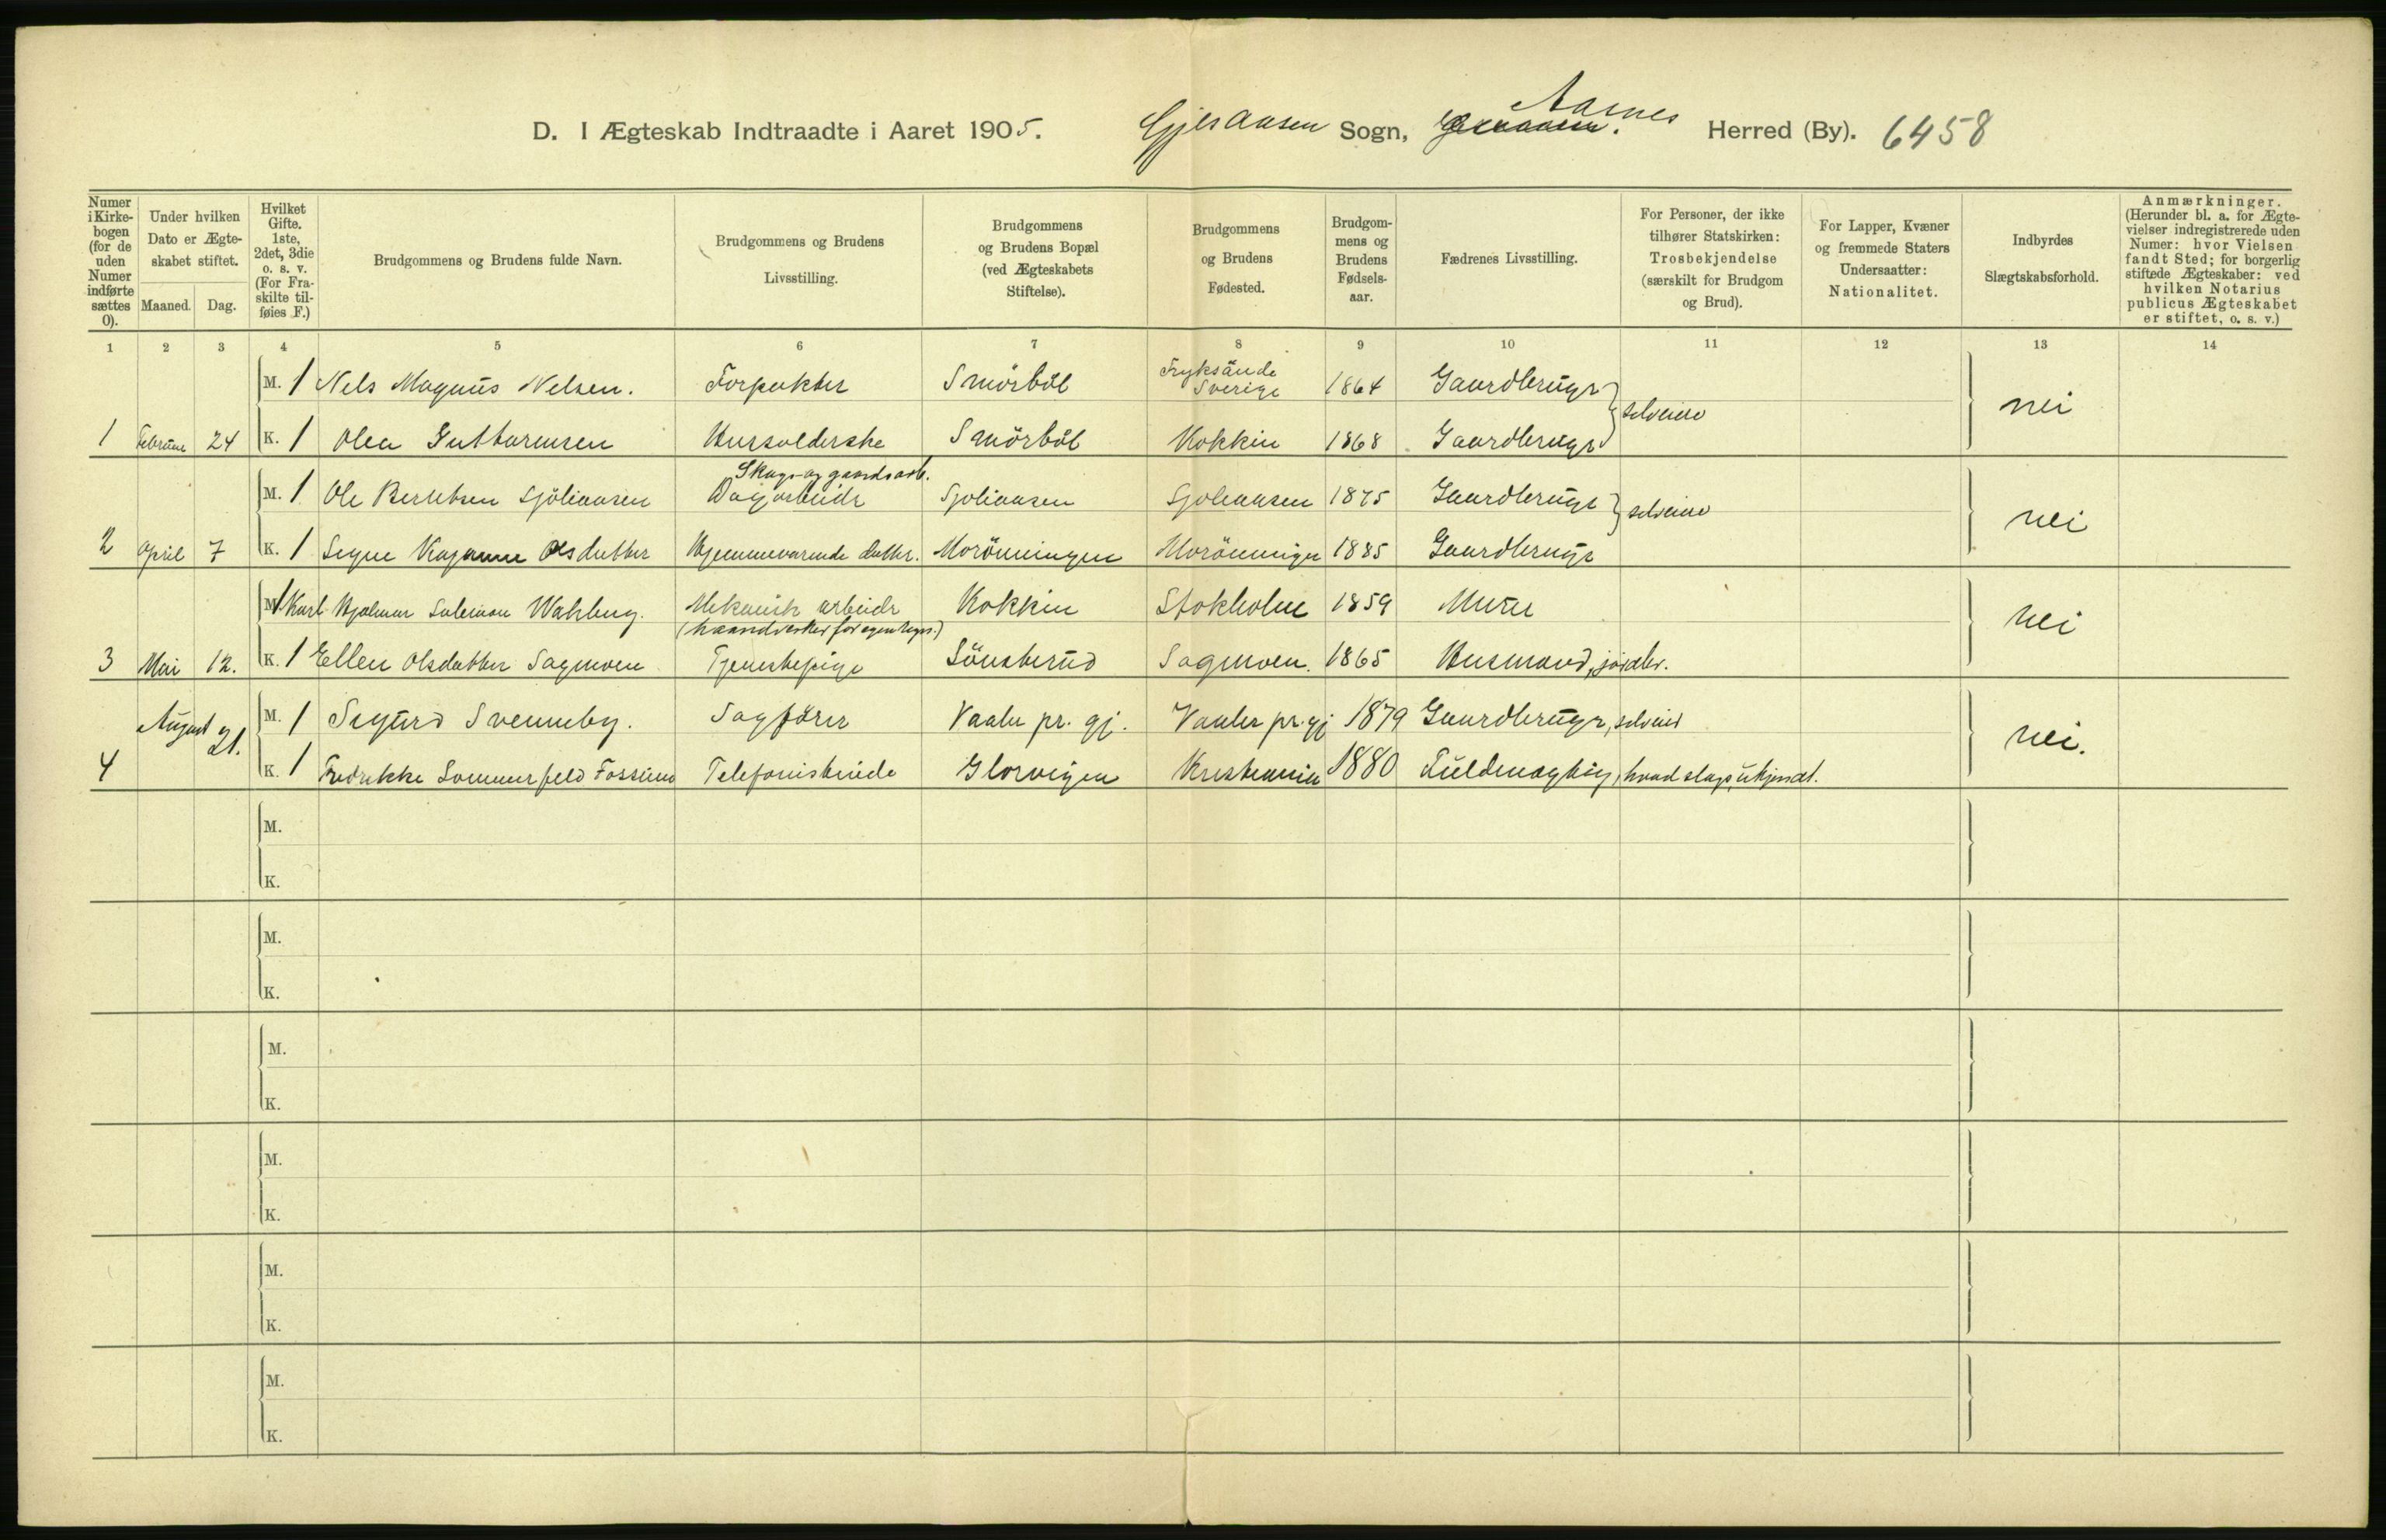 D. I Ægteskab Indtraadte i Aaret 1905. Gjesaasen Sogn, Aasnes Herred (By). 6458
Numer i Kirke-bogen (for de uden Numer indførte sættes 0).
Under hvilken Dato er Ægte-skabet stiftet.
Maaned. Dag.
Hvilket Gifte. 1ste, 2det, 3die o. s. v. (For Fra-skilte til-føies F.)
Brudgommens og Brudens fulde Navn.
Brudgommens og Brudens Livsstilling.
Brudgommens og Brudens Bopæl (ved Ægteskabets Stiftelse).
Brudgommens og Brudens Fødested.
Brudgom-mens og Brudens Fødsels-aar.
Fædrenes Livsstilling.
For Personer, der ikke tilhører Statskirken: Trosbekjendelse (særskilt for Brudgom og Brud).
For Lapper, Kvæner og fremmede Staters Undersaatter: Nationalitet.
Indbyrdes Slægtskabsforhold.
Anmærkninger. (Herunder bl. a. for Ægte-vielser indregistrerede uden Numer: hvor Vielsen fandt Sted; for borgerlig stiftede Ægteskaber: ved hvilken Notarius publicus Ægteskabet er stiftet, o. s. v.)
1 2 3 4 5 6 7 8 9 10 11 12 13 14
M. 1 Nels Magnus Nelsen. Forpakter Smörböl Fryksände Sverige 1864 Gaardbruger selveiere nei
1 Februar 24 K. 1 Olea Guttormsen Husholderske Smörböl Kokkin 1868 Gaardbruger
Skogs- og gaardsarb.
M. 1 Ole Berntsen Sjöliaasen Dagarbeider Sjoliaasen Sjoliaasen 1875 Gaardbruger selveiere nei
2 April 7 K. 1 Signe Kajanne Olsdatter Hjemmeværende datter. Morönningen Morönningen 1885 Gaardbruger
M. 1 Karl Hjalmar Salemon Wahlberg. Mekanisk arbeider Kokkin Stokholm 1859 Murer nei
(haandverker for egen regn.)
3 Mai 12. K. 1 Ellen Olsdatter Sagmoen Tjenestepige Sönsterud Sagmoen. 1865 Husmand, jordbr.
August 21. M. 1 Sigurd Svenneby. Sagförer Vaaler pr. gj. Vaaler pr. gj 1879 Gaardbruger, selveier nei.
4 K. 1 Fredrikke Sommerfeld Fossum Telefonistinde Glorvigen Kristiania 1880 Fuldmægtig, hvad slags, ukjendt.
M.
K.
M.
K.
M.
K.
M.
K.
M.
K.
M.
K.